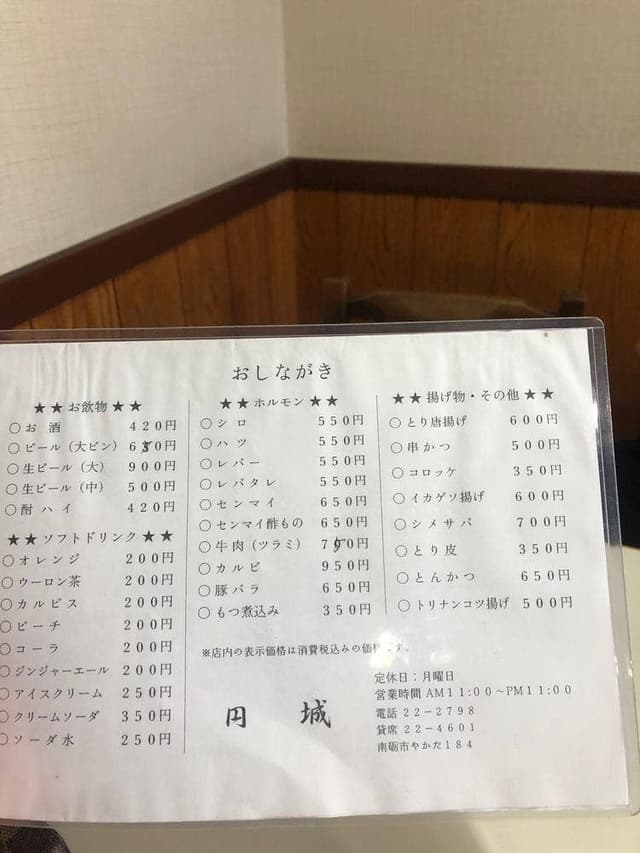 おしながき
★★お飲物★★
○お 酒 420円
○ビール(大ビン) 650円
○生ビール(大) 900円
○生ビール(中) 500円
○酎ハイ 420円
★★ソフトドリンク★★
○オレンジ 200円
○ウーロン茶 200円
○カルピス 200円
○ピーチ 200円
○コーラ 200円
○ジンジャーエール 200円
○アイスクリーム 250円
○クリームソーダ 350円
○ソーダ水 250円
★★ホルモン★★
○シロ 550円
○ハツ 550円
○レバー 550円
○レバタレ 550円
○センマイ 650円
○センマイ酢もの 650円
○牛肉(ツラミ)
○カルビ 950円
○豚バラ 650円
○もつ煮込み 350円
★★揚げ物・その他★★
○とり唐揚げ 600円
○串かつ 500円
○コロッケ 350円
○イカゲソ揚げ 600円
○シメサバ 700円
○とり皮 350円
○とんかつ 650円
○トリナンコツ揚げ 500円
※店内の表示価格は消費税込みの価格です。
円 城
定休日:月曜日
営業時間 AM11:00~PM11:00
電話 22-2798
貸席 22-4601
南砺市やかた184